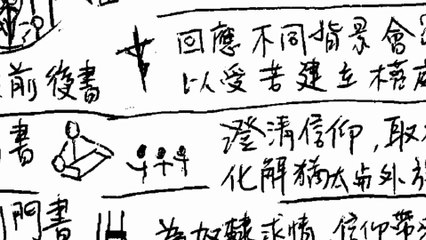 前後書
回應不同背景會
以受苦建立榜
書
澄清信仰,取
化解猶太与外
門書
為奴隸求情,信仰帶